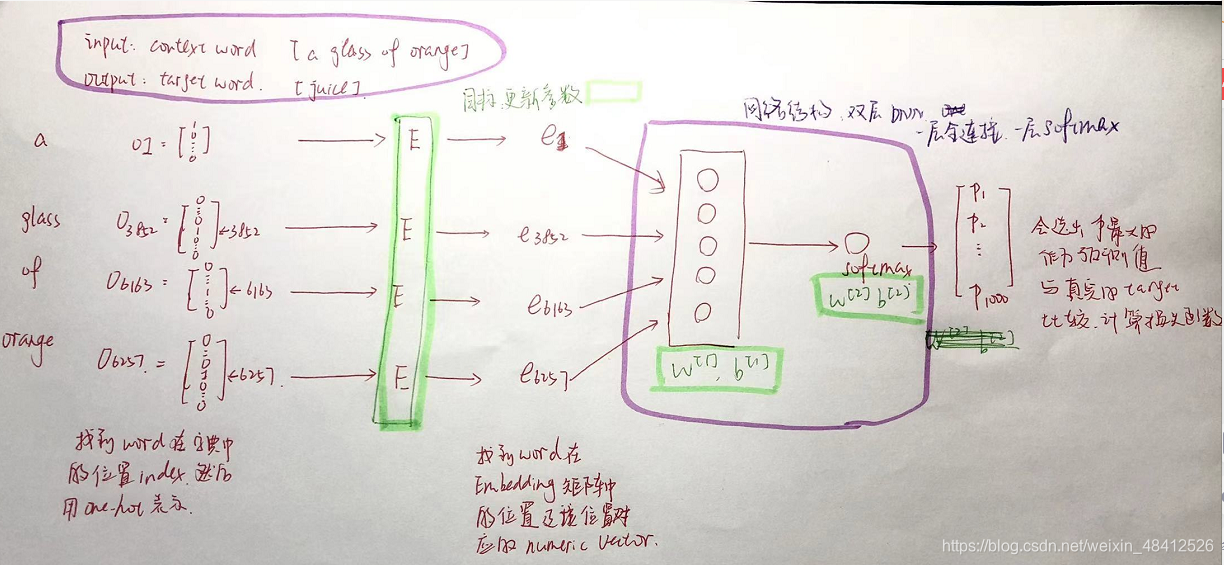 input: context word [a glass of orange]
output: target word. [juice].
目标.更新参数
网络结构.双层DNN.
一层全连接.一层softmax
a O1 = [1 0 ⋮ 0] E e1
glass O3852 = [0 ⋮ 0 1 0 ⋮ 0] ←3852 E e3852
of O6163 = [0 ⋮ 1 ⋮ 0] ←6163 E e6163
orange O6257. = [0 ⋮ 0 1 0 ⋮ 0] ←6257. E e6257
softmax
W[1], b[1]
W[2] b[2]
P1
P2
⋮
P1000
会选出中最大的
作为预测值
与真实的target
比较.计算损失函数
找到word在字典中
的位置index.然后
用one-hot表示.
找到word在
Embedding矩阵中
的位置及该位置对
应的numeric vector.
https://blog.csdn.net/weixin_48412526